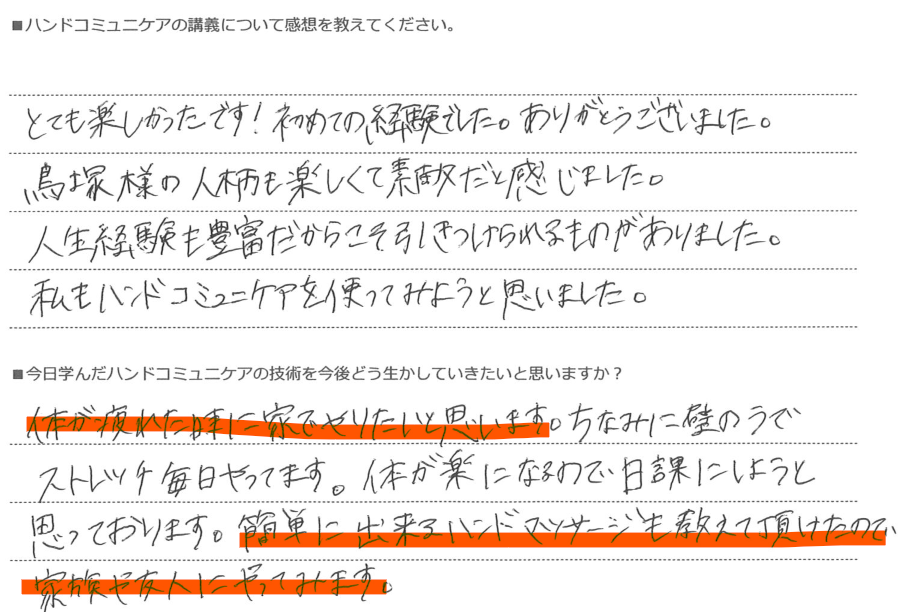 ■ハンドコミュニケアの講義について感想を教えてください。
とても楽しかったです！初めての経験でした。ありがとうございました。
鳥塚様の人柄も楽しくて素敵だと感じました。
人生経験も豊富だからこそ引きつけられるものがありました。
私もハンドコミュニケアを使ってみようと思いました。
■今日学んだハンドコミュニケアの技術を今後どう生かしていきたいと思いますか？
体が疲れた時に家でやりたいと思います。ちなみに壁のうで
ストレッチ毎日やってます。体が楽になるので日課にしようと
思っております。簡単に出来るハンドマッサージも教えて頂けたので、
家族や友人にやってみます。